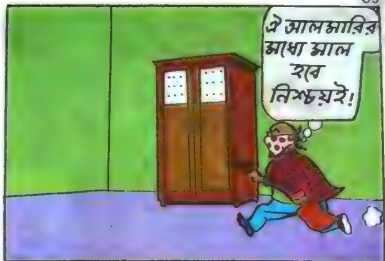 ঐ আলমারির
মধ্যে মাল
হবে
নিশ্চয়ই!